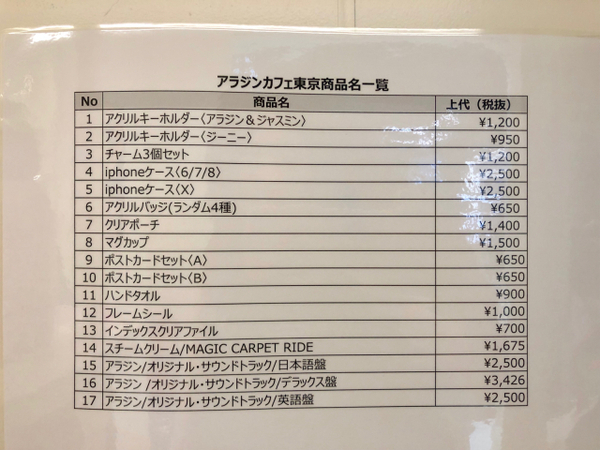 アラジンカフェ東京商品名一覧
No 商品名 上代（税抜）
1 アクリルキーホルダー〈アラジン＆ジャスミン〉 ¥1,200
2 アクリルキーホルダー〈ジーニー〉 ¥950
3 チャーム3個セット ¥1,200
4 iphoneケース〈6/7/8〉 ¥2,500
5 iphoneケース〈X〉 ¥2,500
6 アクリルバッジ(ランダム4種) ¥650
7 クリアポーチ ¥1,400
8 マグカップ ¥1,500
9 ポストカードセット〈A〉 ¥650
10 ポストカードセット〈B〉 ¥650
11 ハンドタオル ¥900
12 フレームシール ¥1,000
13 インデックスクリアファイル ¥700
14 スチームクリーム/MAGIC CARPET RIDE ¥1,675
15 アラジン/オリジナル・サウンドトラック/日本語盤 ¥2,500
16 アラジン /オリジナル・サウンドトラック/デラックス盤 ¥3,426
17 アラジン/オリジナル・サウンドトラック/英語盤 ¥2,500